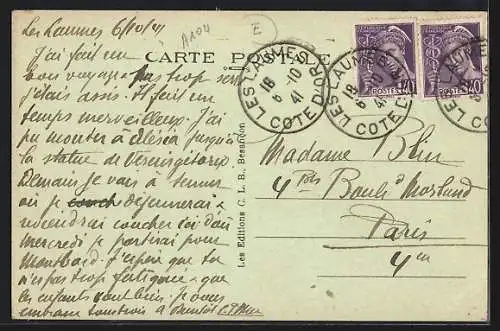 Les Laumes 6/10/41
J'ai fait un
bon voyage pas trop serré
j'étais assis. Il fait un
temps merveilleux. J'ai
pu monter à Alésia jusqu'à
la statue de Vercingétorix
Demain je vais à Semur
où je couch déjeunerai &
reviendrai coucher ici d'où
mercredi je partirai pour
Montbard. J'espère que tu
n'es pas trop fatiguée & que
les enfants vont bien. Je vous
embrasse tous trois à bientôt
A1004
E
CARTE POSTALE
LES LAUMES
18
6 -10
41
COTE D'OR
LES LAUMES
18
6 -10
41
COTE D'OR
POSTES 40
POSTES 40
Les Editions C. L. B., Besançon
Madame Blin
4 ter Boul. d Morland
Paris
4 em